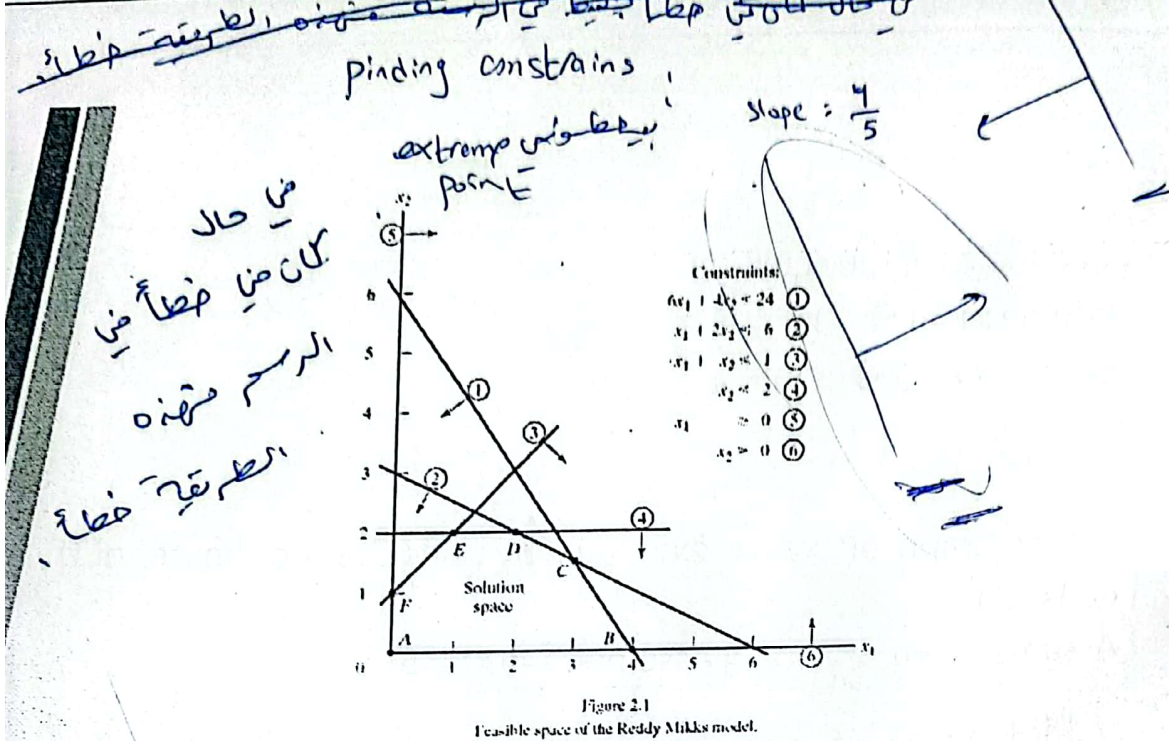 الطريقة خطأ
pinding constrains
slope : 4/5
extremp بيعطوني
point
في حال
كان في خطأ في
الرسم فهذه
الطريقة خطأ
x₂
⑤
6
5
4
3
2
1
0
①
③
②
④
E
D
C
F
Solution
space
A
B
1 2 3 4 5 6 ⑥ x₁
Constraints:
6x₁ + 4x₂ ≤ 24 ①
x₁ + 2x₂ ≤ 6 ②
-x₁ + x₂ ≤ 1 ③
x₂ ≤ 2 ④
x₁ ≥ 0 ⑤
x₂ ≥ 0 ⑥
Figure 2.1
Feasible space of the Reddy Mikks model.